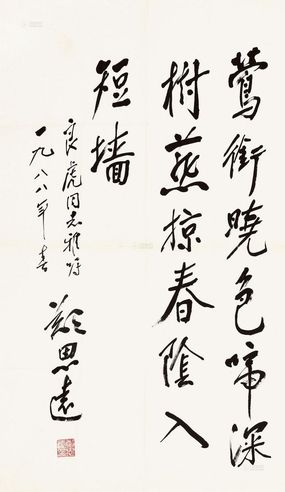 莺衔晓色啼深
树燕掠春阴入
短墙
良虎同志雅嘱
一九八八年春
思远